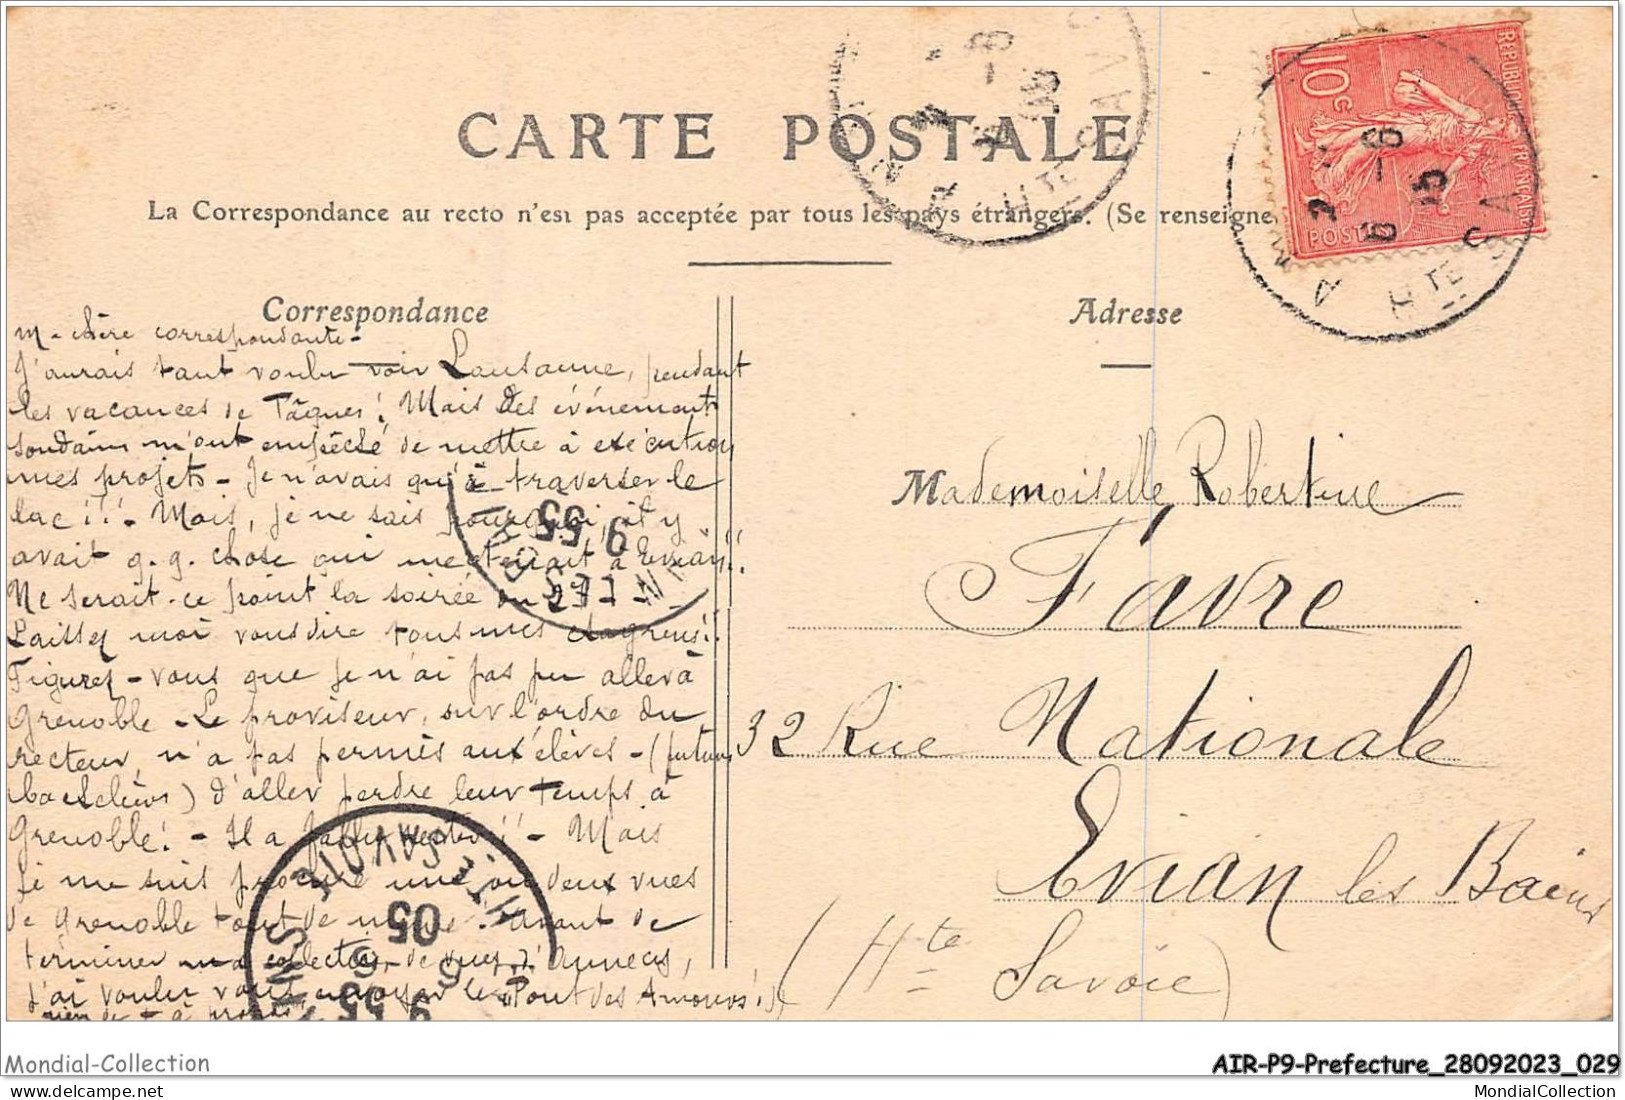 CARTE POSTALE
La Correspondance au recto n'est pas acceptée par tous les pays étrangers. (Se renseigne
Correspondance
Adresse
10 c
REPUBLIQUE FRANÇAISE
POSTES
M- chère correspondante-
J'aurais tant voulu voir Lausanne, pendant
les vacances de Pâques! Mais des événements
soudains m'ont empêché de mettre à exécution
mes projets - Je n'avais qu'à traverser le
lac!!! - Mais, je ne sais pourquoi, il y
avait q. q. chose qui me tenait à Evian!!
Ne serait-ce point la soirée du 27 - - -
Laissez moi vous dire tous mes chagrins!!
Figurez-vous que je n'ai pas pu aller à
Grenoble - Le proviseur, sur l'ordre du
recteur, n'a pas permis aux élèves - (futurs
bacheliers) d'aller perdre leur temps à
Grenoble! - Il a fallu rester!! - Mais
je me suis procuré une ou deux vues
de Grenoble tout de même. Avant de
terminer ma collection de vues d'Annecy,
j'ai voulu vous envoyer le "Pont des Amours!"
Mademoiselle Robertine
Favre
32 Rue Nationale
Evian les Bains
(Hte Savoie)
HTE SAVOIE
05
9 55
Mondial-Collection
AIR-P9-Prefecture_28092023_029
MondialCollection
delcampe.net